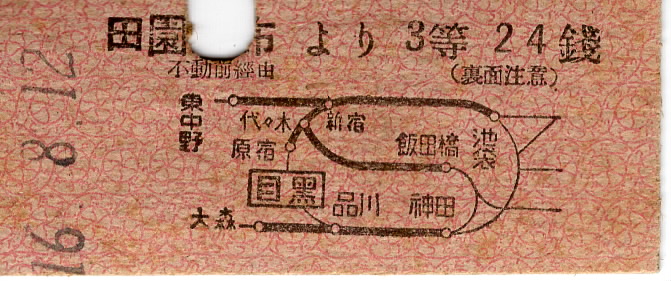 田園 布 より 3等 24錢
不動前經由
（裏面注意）
東中野
代々木
新宿
原宿
飯田橋
池袋
目黑
品川
神田
大森
16. 8.12